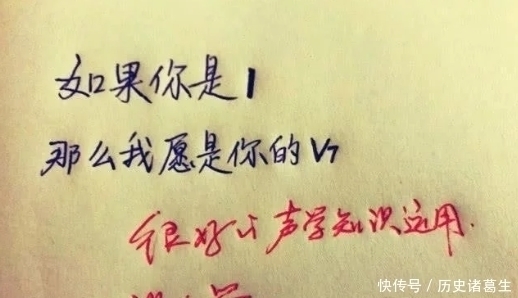 如果你是1
那么我愿是你的V7
很好 声学知识运用.
快传号／历史诸葛生